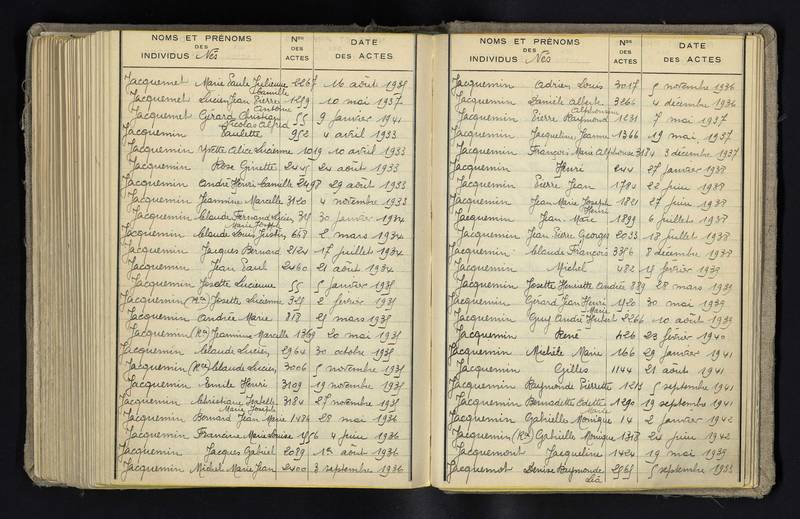 NOMS ET PRÉNOMS
DES
INDIVIDUS Nés
Nos
DES
ACTES
DATE
DES ACTES
Jacquemet Marie Paule Julienne 2267 16 août 1935
Camille
Jacquemet Lucien Jean Pierre 1259 10 mai 1937
Antoine
Jacquemet Gérard Christian 55 9 janvier 1941
Nicolas Alfred
Jacquemin Paulette 952 4 avril 1933
Jacquemin Yvette Alice Lucienne 1019 10 avril 1933
Jacquemin Rose Ginette 2445 24 août 1933
Jacquemin André Henri Camille 2498 29 août 1933
Jacquemin Jeannine Marcelle 3120 4 novembre 1933
Jacquemin Claude Fernand Lucien 30 janvier 1934
Marie Joseph
Jacquemin Claude Louis Justin 668 2 mars 1934
Jacquemin Jacques Bernard 2124 17 juillet 1934
Jacquemin Jean Paul 2460 21 août 1934
Jacquemin Josette Lucienne 55 5 janvier 1935
Jacquemin (Rn) Josette Lucienne 325 2 février 1935
Jacquemin Andrée Marie 818 21 mars 1935
Jacquemin (Rn) Jeannine Marcelle 1369 20 mai 1935
Jacquemin Claude Lucien 2964 30 octobre 1935
Jacquemin (Rn) Claude Lucien 3006 5 novembre 1935
Jacquemin Emile Henri 3109 19 novembre 1935
Jacquemin 3184 27 novembre 1935
Marie Joseph
Jacquemin Bernard Jean Marie 1486 28 mai 1936
Jacquemin Francine Marie Louise 1556 4 juin 1936
Jacquemin Jacques Gabriel 2089 1er août 1936
Jacquemin Michel Marie Jean 2400 3 septembre 1936
NOMS ET PRÉNOMS
DES
INDIVIDUS Nés
Nos
DES
ACTES
DATE
DES ACTES
Jacquemin Adrien Louis 3017 5 novembre 1936
Jacquemin Daniel Albert 3266 4 décembre 1936
Alphonsine
Jacquemin Pierre Raymond 1231 7 mai 1937
Jacquemin Jacqueline Jeanne 1366 19 mai 1937
Jacquemin François Marie Alphonse 3184 3 décembre 1937
Jacquemin Henri 244 27 janvier 1938
Jacquemin Pierre Jean 1794 22 juin 1938
Jacquemin Jean Marie Joseph 1821 27 juin 1938
Henri
Jacquemin Jean Marc 1899 6 juillet 1938
Jacquemin Jean Pierre Georges 2033 18 juillet 1938
Jacquemin Claude François 3356 8 décembre 1938
Jacquemin Michel 482 15 février 1939
Jacquemin Josette Henriette Andrée 889 28 mars 1939
Jacquemin Gérard Jean Henri 1520 30 mai 1939
Marie
Jacquemin Guy André Hubert 2266 10 août 1939
Jacquemin René 426 23 février 1940
Jacquemin Michèle Marie 166 29 janvier 1941
Jacquemin Gilles 1144 21 août 1941
Jacquemin Raymonde Pierrette 1213 5 septembre 1941
Jacquemin Bernadette Odette 1290 19 septembre 1941
Marie
Jacquemin Gabrielle Monique 14 2 janvier 1942
Jacquemin (Rn) Gabrielle Monique 1318 24 juin 1942
Jacquemont Jacqueline 1424 19 mai 1939
Jacquemot Denise Raymonde 2565 5 septembre 1933
Léa